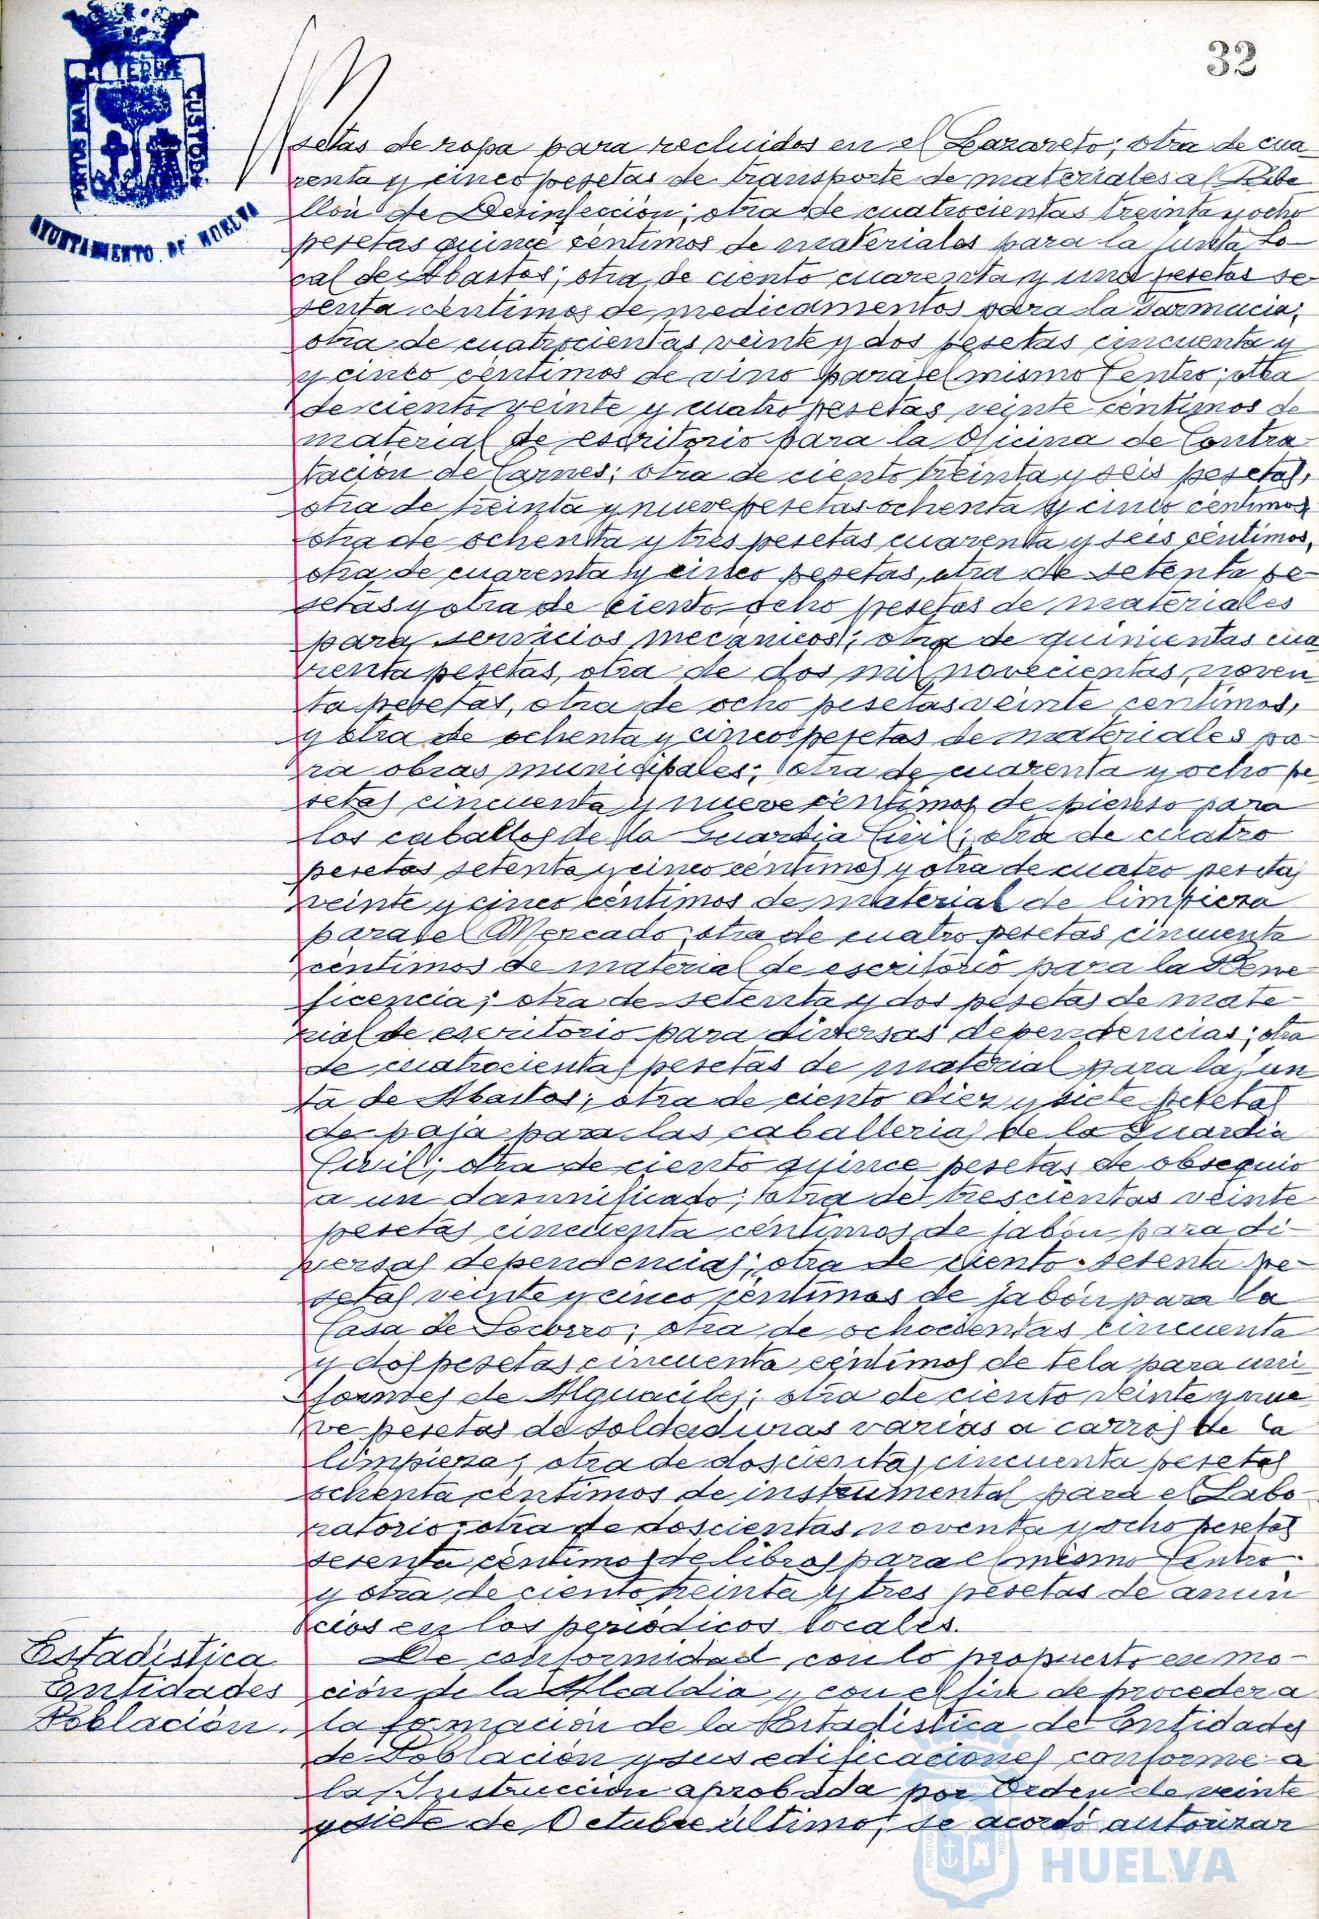 32
PORTUS MARIS ET TERRÆ CUSTODIA
AYUNTAMIENTO DE HUELVA
setas de ropa para recluidos en el Lazareto; otra de cua-
renta y cinco pesetas de transporte de materiales al Pabe
llón de Desinfección; otra de cuatrocientas treinta y ocho
pesetas quince céntimos de materiales para la Junta Lo-
cal de Abastos; otra de ciento cuarenta y una pesetas se-
senta céntimos de medicamentos para la Farmacia;
otra de cuatrocientas veinte y dos pesetas cincuenta y
y cinco céntimos de vino para el mismo Centro; otra
de ciento veinte y cuatro pesetas veinte céntimos de
material de escritorio para la Oficina de Contra-
tación de Carnes; otra de ciento treinta y seis pesetas,
otra de treinta y nueve pesetas ochenta y cinco céntimos
otra de ochenta y tres pesetas cuarenta y seis céntimos,
otra de cuarenta y cinco pesetas, otra de setenta pe-
setas y otra de ciento ocho pesetas de materiales
para servicios mecánicos; otra de quinientas cua
renta pesetas, otra de dos mil novecientas noven
ta pesetas, otra de ocho pesetas veinte centimos,
y otra de ochenta y cinco pesetas de materiales pa-
ra obras municipales; otra de cuarenta y ocho pe
setas cincuenta y nueve céntimos de pienso para
los caballos de la Guardia Civil; otra de cuatro
pesetas setenta y cinco céntimos y otra de cuatro pesetas
veinte y cinco céntimos de material de limpieza
para el Mercado; otra de cuatro pesetas cincuenta
céntimos de material de escritorio para la Bene
ficencia; otra de setenta y dos pesetas de mate-
rial de escritorio para diversas dependencias; otra
de cuatrocientas pesetas de material para la Jun
ta de Abastos; otra de ciento diez y siete pesetas
de paja para las caballerias de la Guardia
Civil; otra de ciento quince pesetas de obsequio
a un damnificado; otra de trescientas veinte
pesetas cincuenta céntimos de jabón para di-
versas dependencias; otra de ciento sesenta pe-
setas veinte y cinco céntimos de jabón para la
Casa de Socorro; otra de ochocientas cincuenta
y dos pesetas cincuenta céntimos de tela para uni
formes de Alguaciles; otra de ciento veinte y nue
ve pesetas de soldaduras varias a carros de la
limpieza; otra de doscientas cincuenta pesetas
ochenta céntimos de instrumental para el Labo-
ratorio; otra de doscientas noventa y ocho pesetas
sesenta céntimos de libros para el mismo Centro
y otra de ciento treinta y tres pesetas de anun
cios en los periódicos locales.
Estadística
Entidades
Población.
De conformidad con lo propuesto en mo-
ción de la Alcaldia y con el fin de proceder a
la formación de la Estadística de Entidades
de Población y sus edificaciones conforme a
la Instrucción aprobada por Orden de veinte
y siete de Octubre último, se acordó autorizar
HUELVA